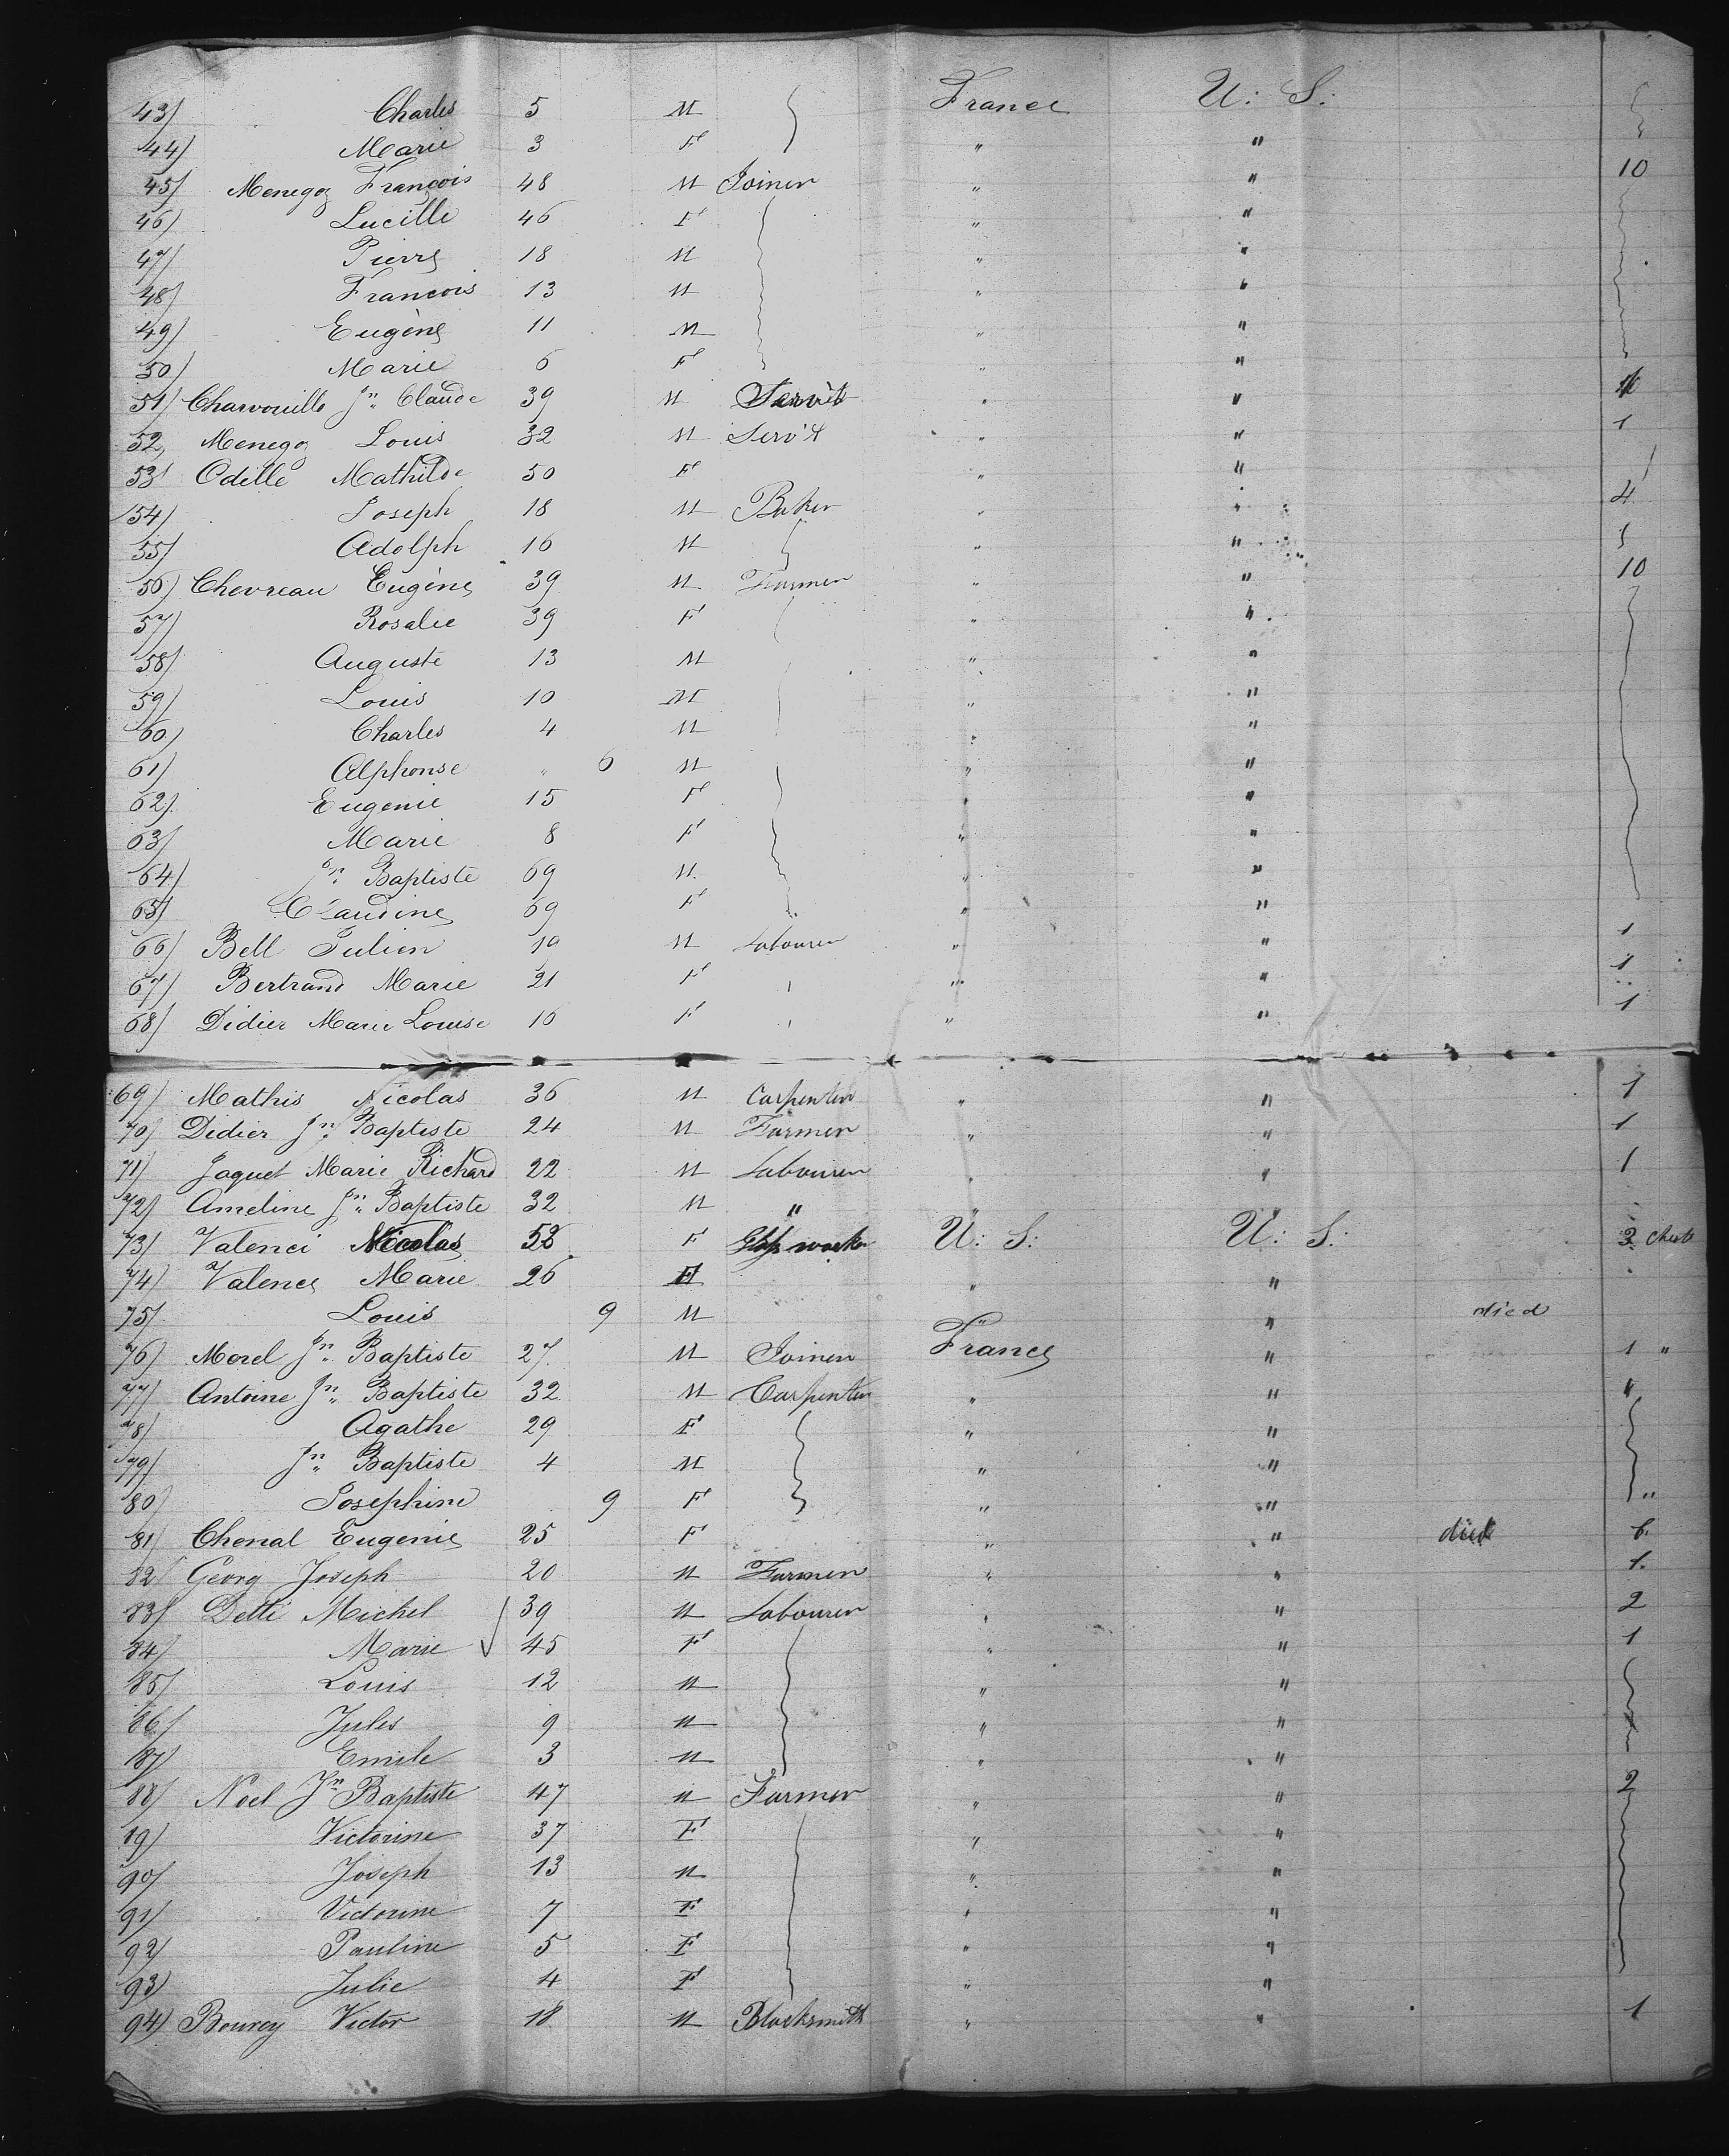 43) Charles 5 M France U: S:
44) Marie 3 F " "
45) Menegoz François 48 M Joiner " " 10
46) Lucille 46 F " "
47) Pierre 18 M " "
48) Francois 13 M " "
49) Eugène 11 M " "
50) Marie 6 F " "
51) Charvouille Jn. Claude 39 M Serv't " "
52) Menegoz Louis 32 M Serv't " " 1
53) Odille Mathilde 50 F " "
54) Joseph 18 M Baker " " 4
55) Adolph 16 M " "
56) Chevreau Eugène 39 M Farmer " " 10
57) Rosalie 39 F " "
58) Auguste 13 M " "
59) Louis 10 M " "
60) Charles 4 M " "
61) Alphonse " 6 M " "
62) Eugenie 15 F " "
63) Marie 8 F " "
64) Jn. Baptiste 69 M " "
65) Claudine 69 F " "
66) Bell Julien 19 M Labourer " " 1
67) Bertrand Marie 21 F " " 1
68) Didier Marie Louise 16 F " " 1
69) Mathis Nicolas 36 M Carpenter " " 1
70) Didier Jn. Baptiste 24 M Farmer " " 1
71) Jaquet Marie Richard 22 M Labourer " " 1
72) Ameline Jn. Baptiste 32 M " " "
73) Valenci Nicolas 58 F worker U: S: U: S: 3 Chests
74) Valence Marie 26 F " "
75) Louis 9 M " " died
76) Morel Jn. Baptiste 27 M Joiner France " 1 "
77) Antoine Jn. Baptiste 32 M Carpenter " "
78) Agathe 29 F " "
79) Jn. Baptiste 4 M " "
80) Josephine 9 F " " "
81) Chenal Eugenie 25 F " " died
82) Georg Joseph 20 M Farmer " " 1.
83) Detti Michel 39 M Labourer " " 2
84) Marie 45 F " " 1
85) Louis 12 M " "
86) Jules 9 M " "
87) Emile 3 M " "
88) Noel Jn. Baptiste 47 M Farmer " " 2
89) Victorine 37 F " "
90) Joseph 13 M " "
91) Victorine 7 F " "
92) Pauline 5 F " "
93) Julie 4 F " "
94) Bourey Victor 18 M Blacksmith " " 1